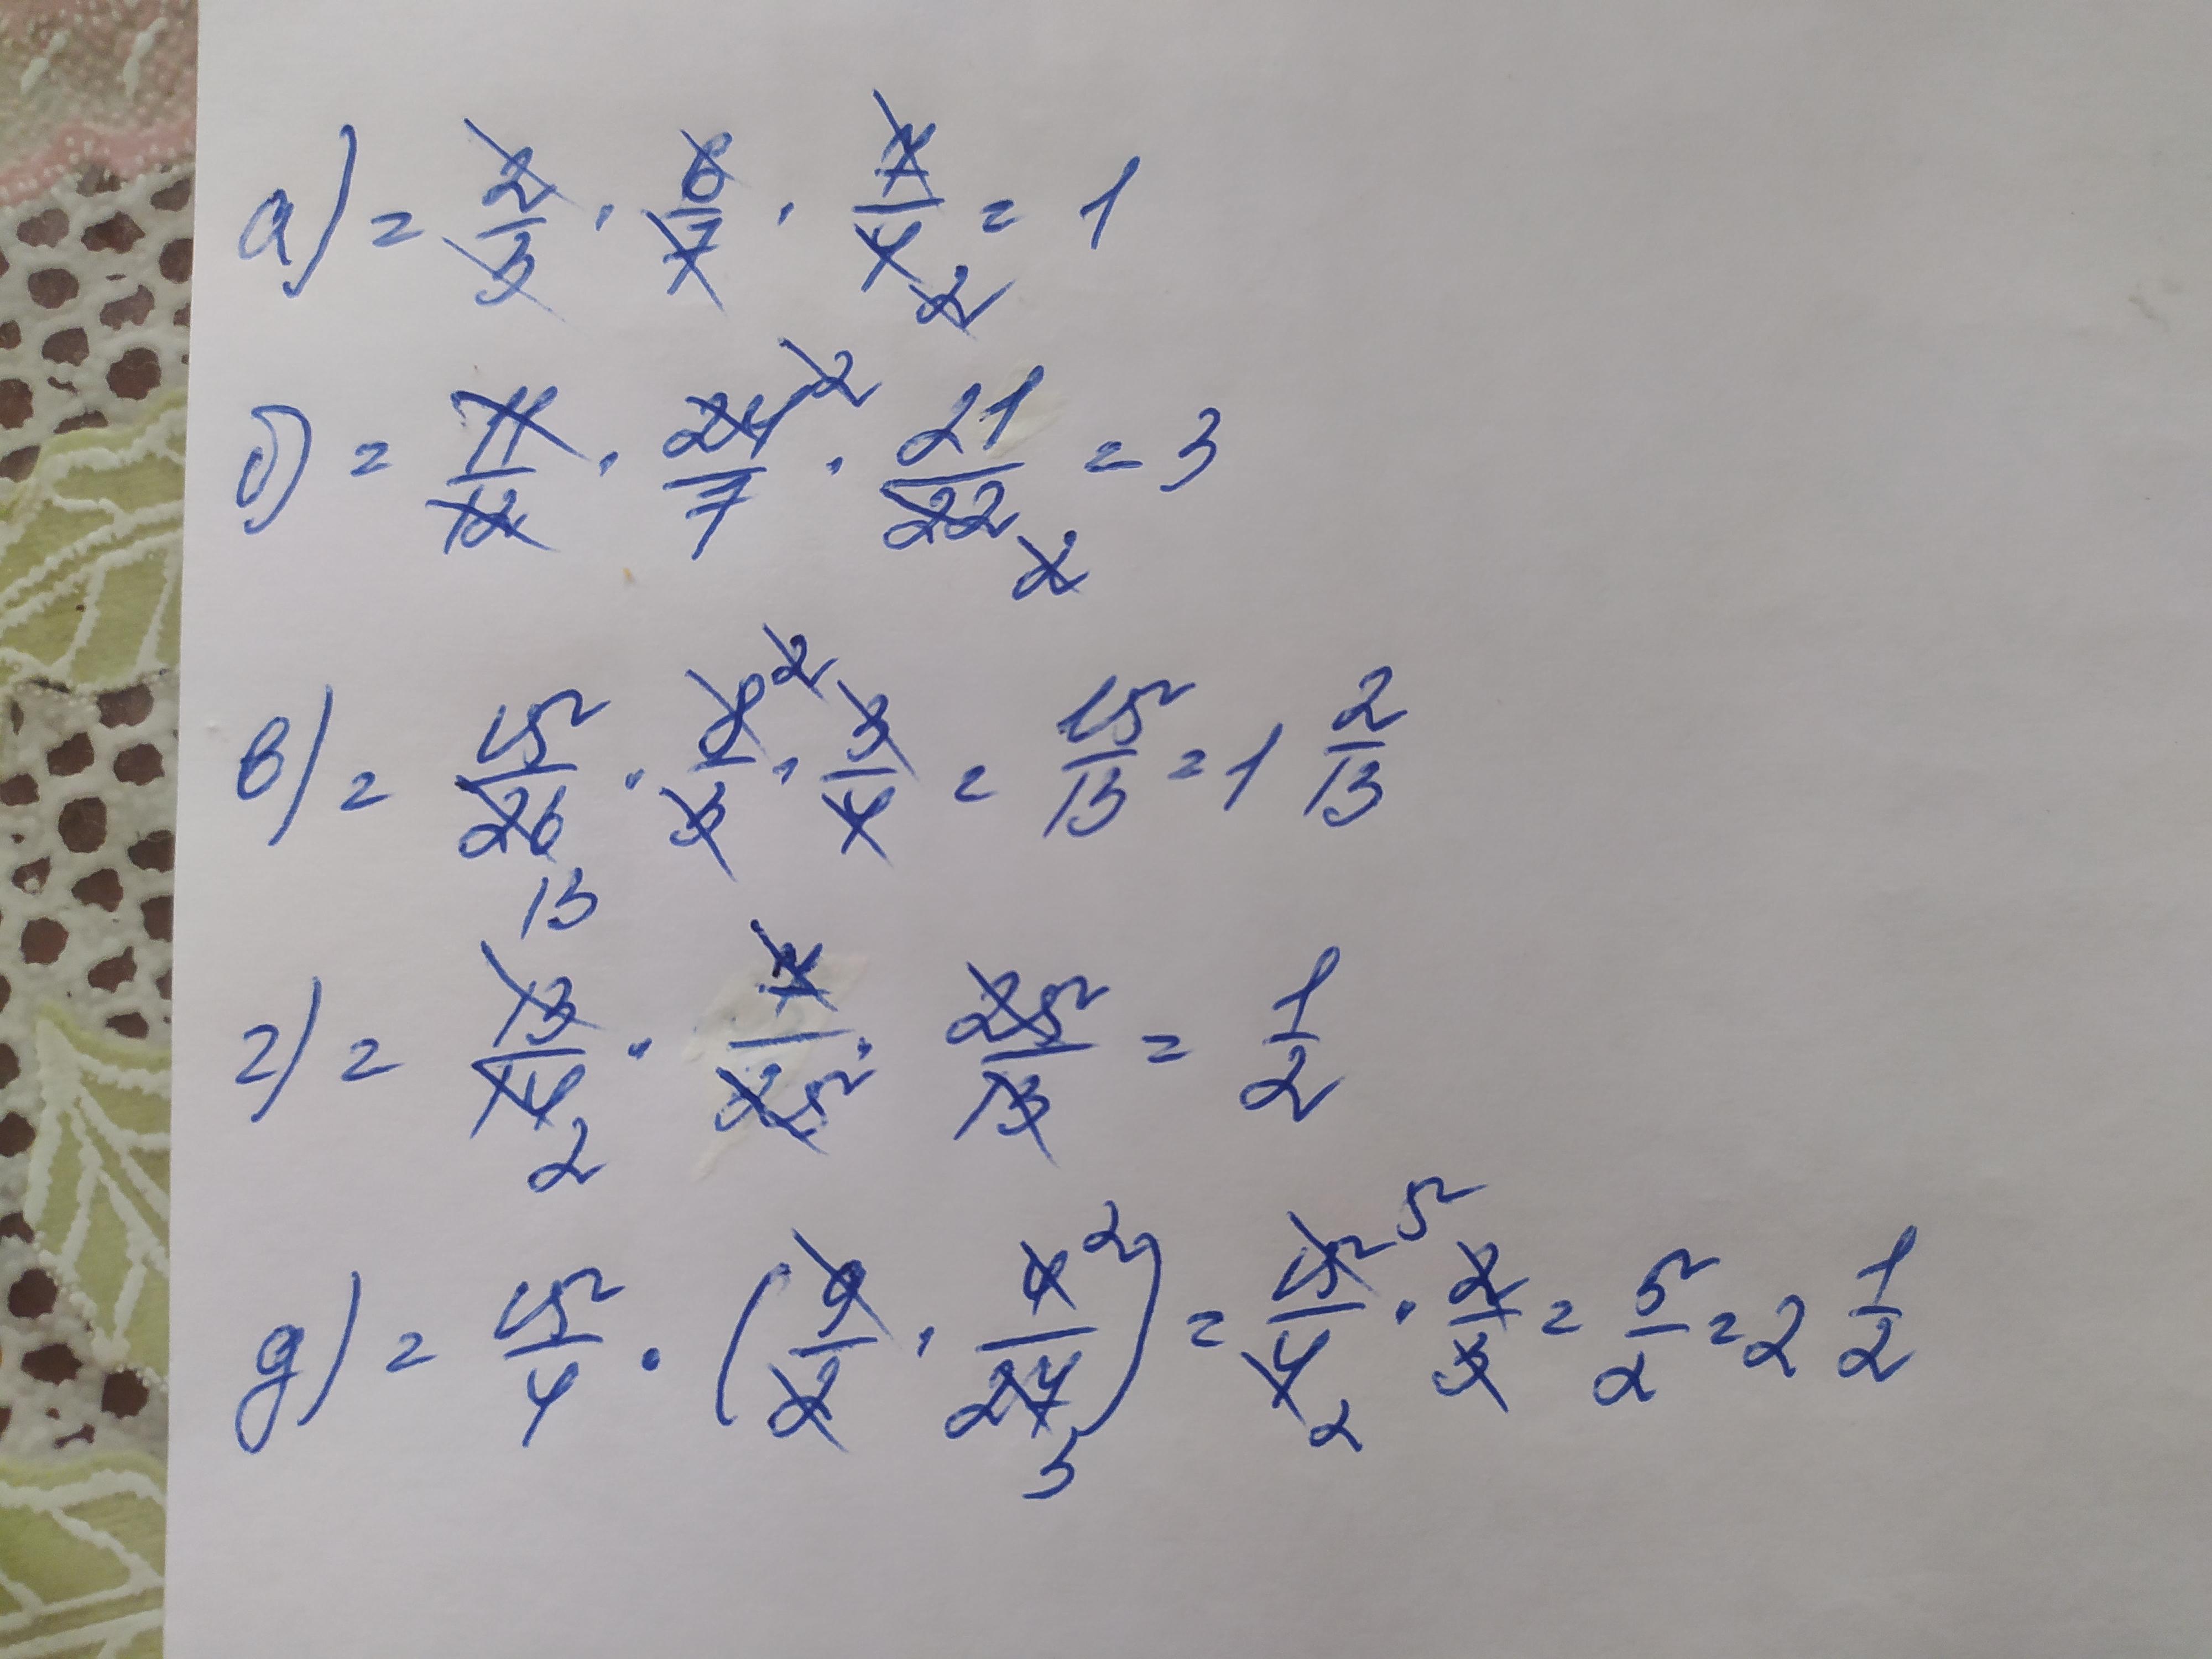 а) = 2/3 · 6/7 · 7/4 2 = 1
б) = 11/12 · 24/7 2 · 21/22 2 = 3
в) = 15/26 13 · 8/3 2 · 3/4 = 15/13 = 1 2/13
г) = 13/14 2 · 7/25 · 25/13 = 1/2
д) = 15/4 · (9/2 · 4/27 2 3) = 15/4 5 2 · 2/3 = 5/2 = 2 1/2